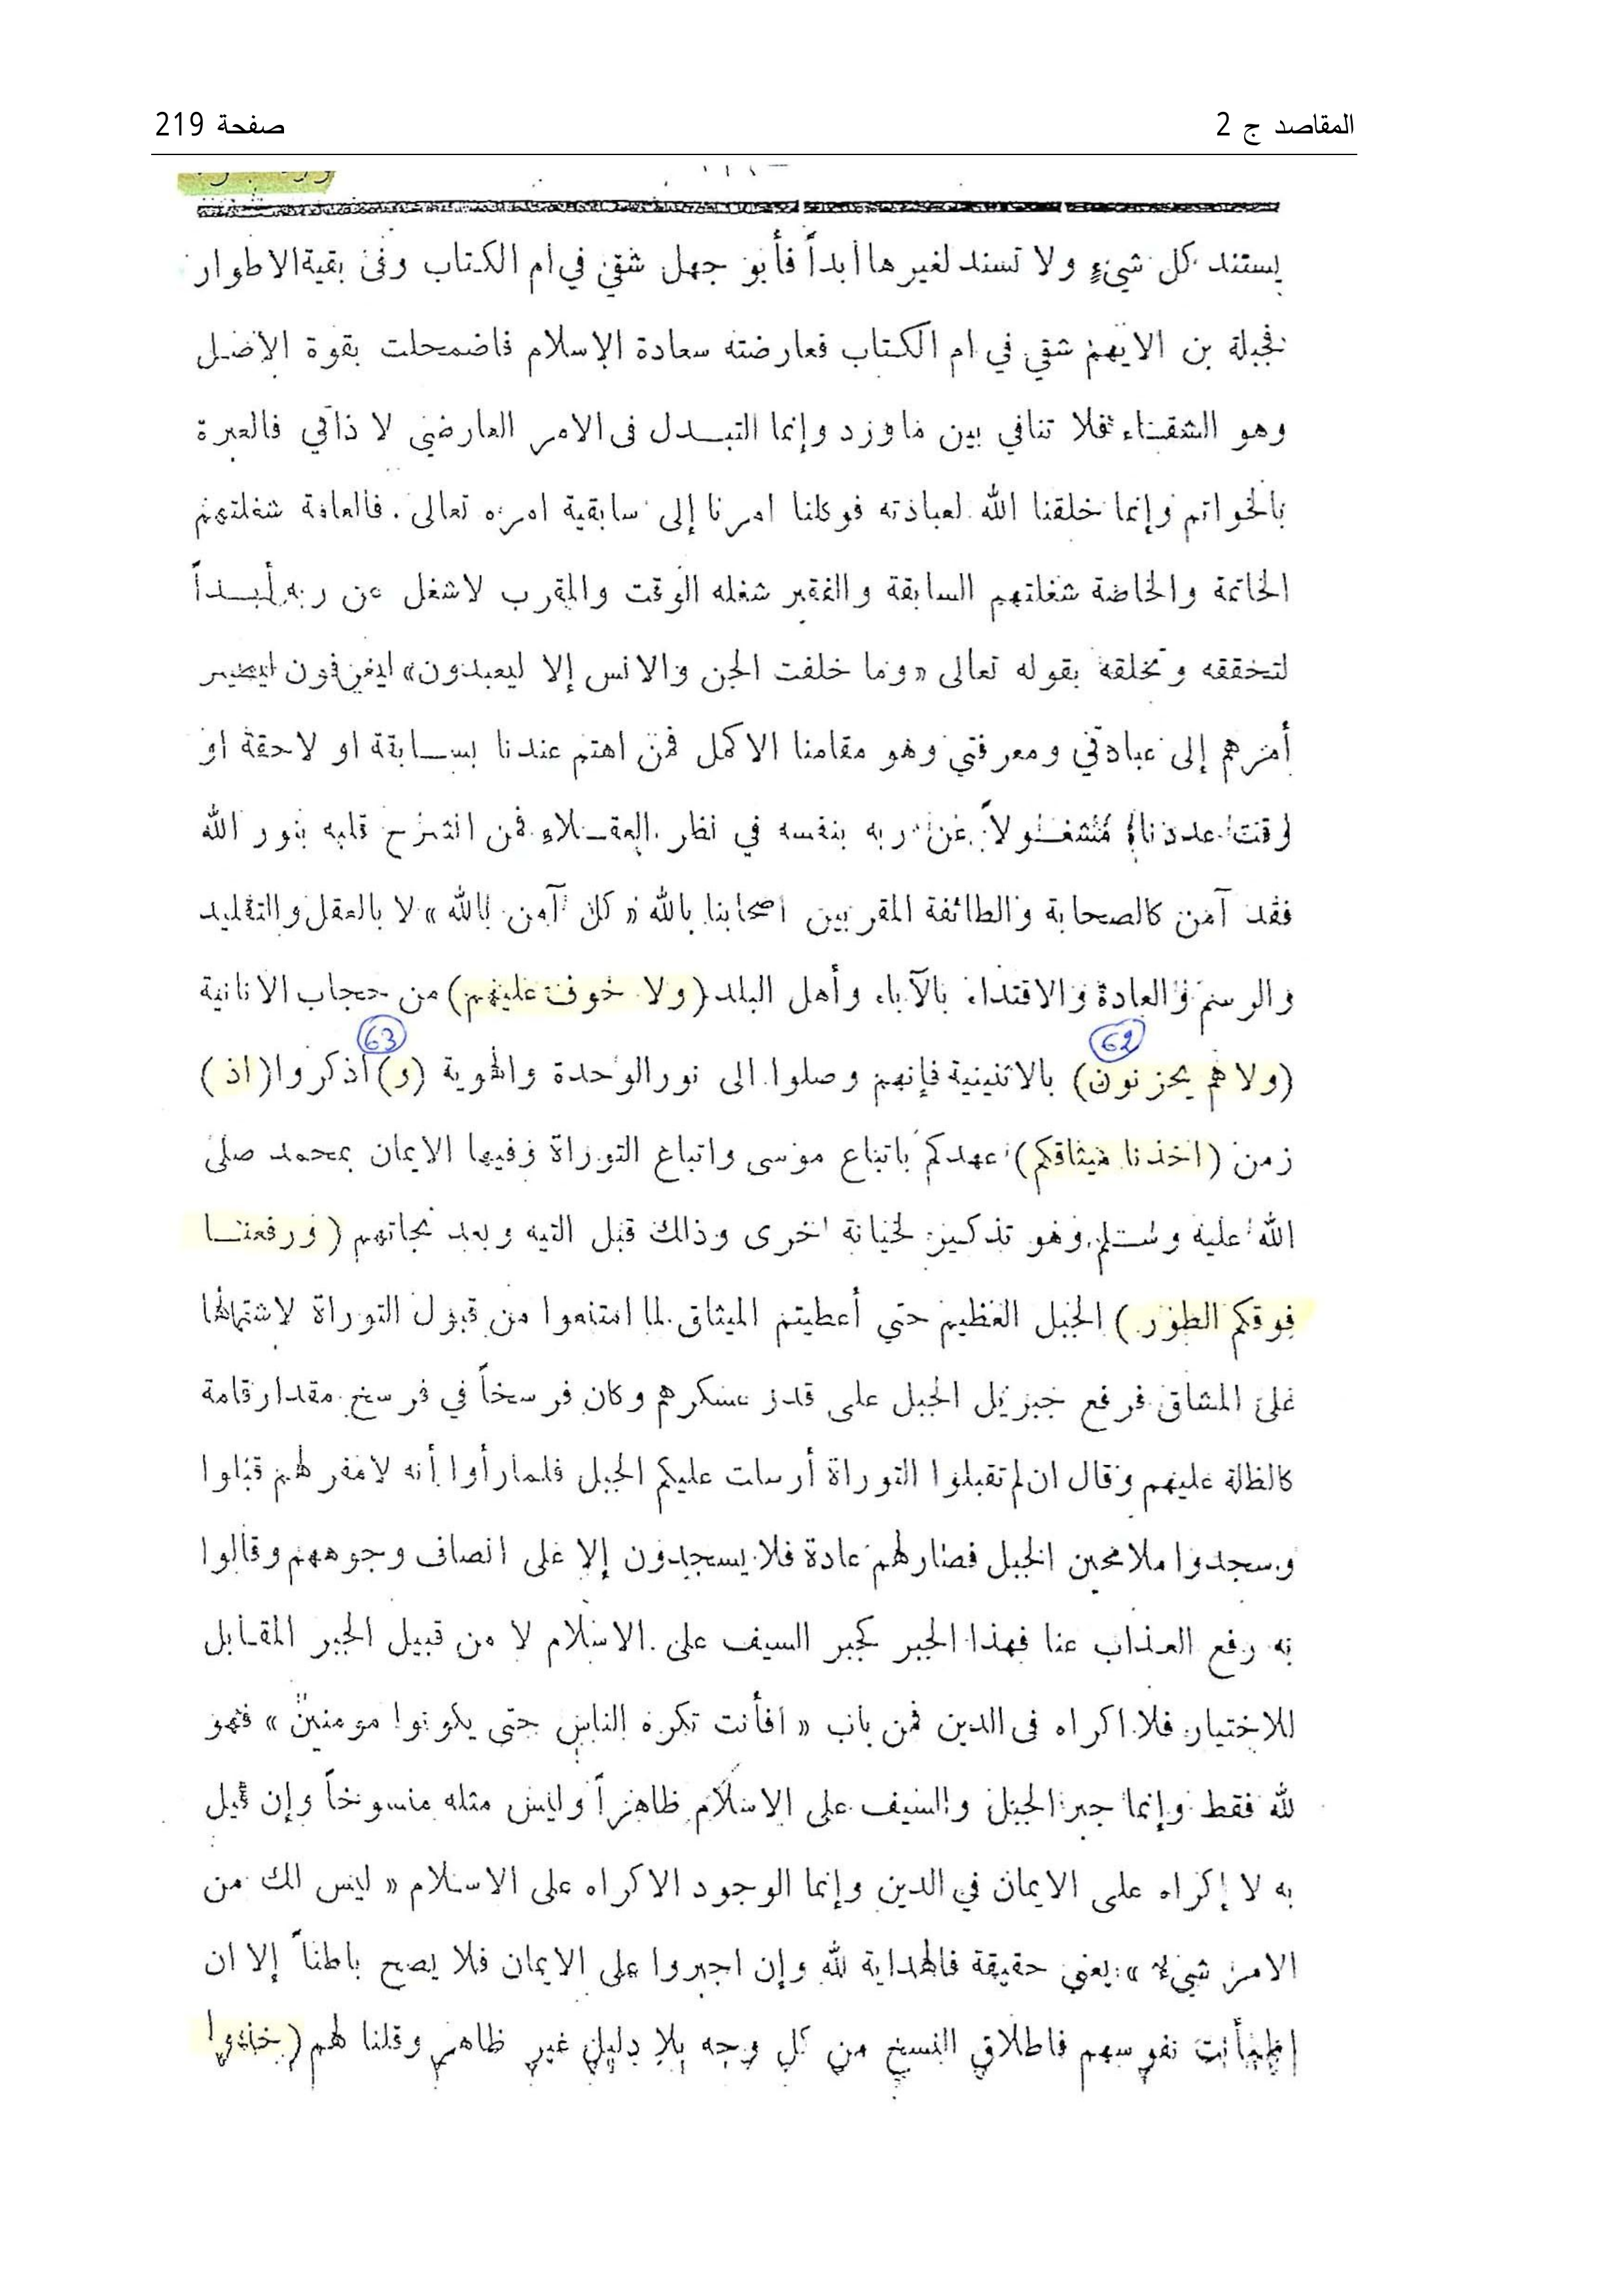 المقاصد ج 2
صفحة 219
يستند كل شيء ولا تسند لغيرها أبداً فأبو جهل شقي في ام الكتاب وفى بقية الاطوار
فجبلة بن الايهم شقي في ام الكتاب فعارضته سعادة الإسلام فاضمحلت بقوة الاصل
وهو الشقاء فلا تنافي بين ما ورد وإنما التبدل فى الامر العارضي لا ذاتي فالعبرة
بالخواتم وإنما خلقنا الله لعبادته فوكلنا امرنا إلى سابقية امره تعالى . فالعامة شغلتهم
الخاتمة والخاصة شغلتهم السابقة والفقير شغله الوقت والمقرب لاشغل عن ربه أبداً
لتحققه وتخلقه بقوله تعالى «وما خلقت الجن والانس إلا ليعبدون»
أمرهم إلى عبادتي ومعرفتي وهو مقامنا الاكمل فمن اهتم عندنا بسابقة او لاحقة او
وقت عددناه مشغولاً عن ربه بنفسه في نظر العقلاء فمن انشرح قلبه بنور الله
فقد آمن كالصحابة والطائفة المقربين اصحابنا بالله «كل آمن بالله» لا بالعقل والتقليد
والرسم والعادة والاقتداء بالآباء وأهل البلد (ولا خوف عليهم) من حجاب الانانية
63 62
(ولا هم يحزنون) بالاثنينية فإنهم وصلوا الى نور الوحدة والهوية (و) اذكروا (اذ)
زمن (اخذنا ميثاقكم) عهدكم باتباع موسى واتباع التوراة وفيها الايمان بمحمد صلى
الله عليه وسلم وهو تذكير لخيانة اخرى وذلك قبل التيه وبعد نجاتهم (ورفعنا
فوقكم الطور) الجبل العظيم حتي أعطيتم الميثاق لما امتنعوا من قبول التوراة لاشتمالها
على المشاق فرفع جبريل الجبل على قدر عسكرهم وكان فرسخاً في فرسخ مقدار قامة
كالظلة عليهم وقال ان لم تقبلوا التوراة أرسلت عليكم الجبل فلما رأوا أنه لا مفر لهم قبلوا
وسجدوا ملامحين الجبل فصار لهم عادة فلا يسجدون إلا على انصاف وجوههم وقالوا
به رفع العذاب عنا فهذا الجبر كجبر السيف على الاسلام لا من قبيل الجبر المقابل
للاختيار فلا اكراه فى الدين فمن باب «افأنت تكره الناس حتى يكونوا مومنين» فهو
لله فقط وإنما جبر الجبل والسيف على الاسلام ظاهراً وليس مثله منسوخاً وإن قيل
به لا إكراه على الايمان في الدين وإنما الوجود الاكراه على الاسلام «ليس لك من
الامر شيء» يعني حقيقة فالهداية لله وإن اجبروا على الايمان فلا يصح باطناً إلا ان
اطمأنت نفوسهم فاطلاق النسخ من كل وجه بلا دليل غير ظاهر وقلنا لهم (خذوا